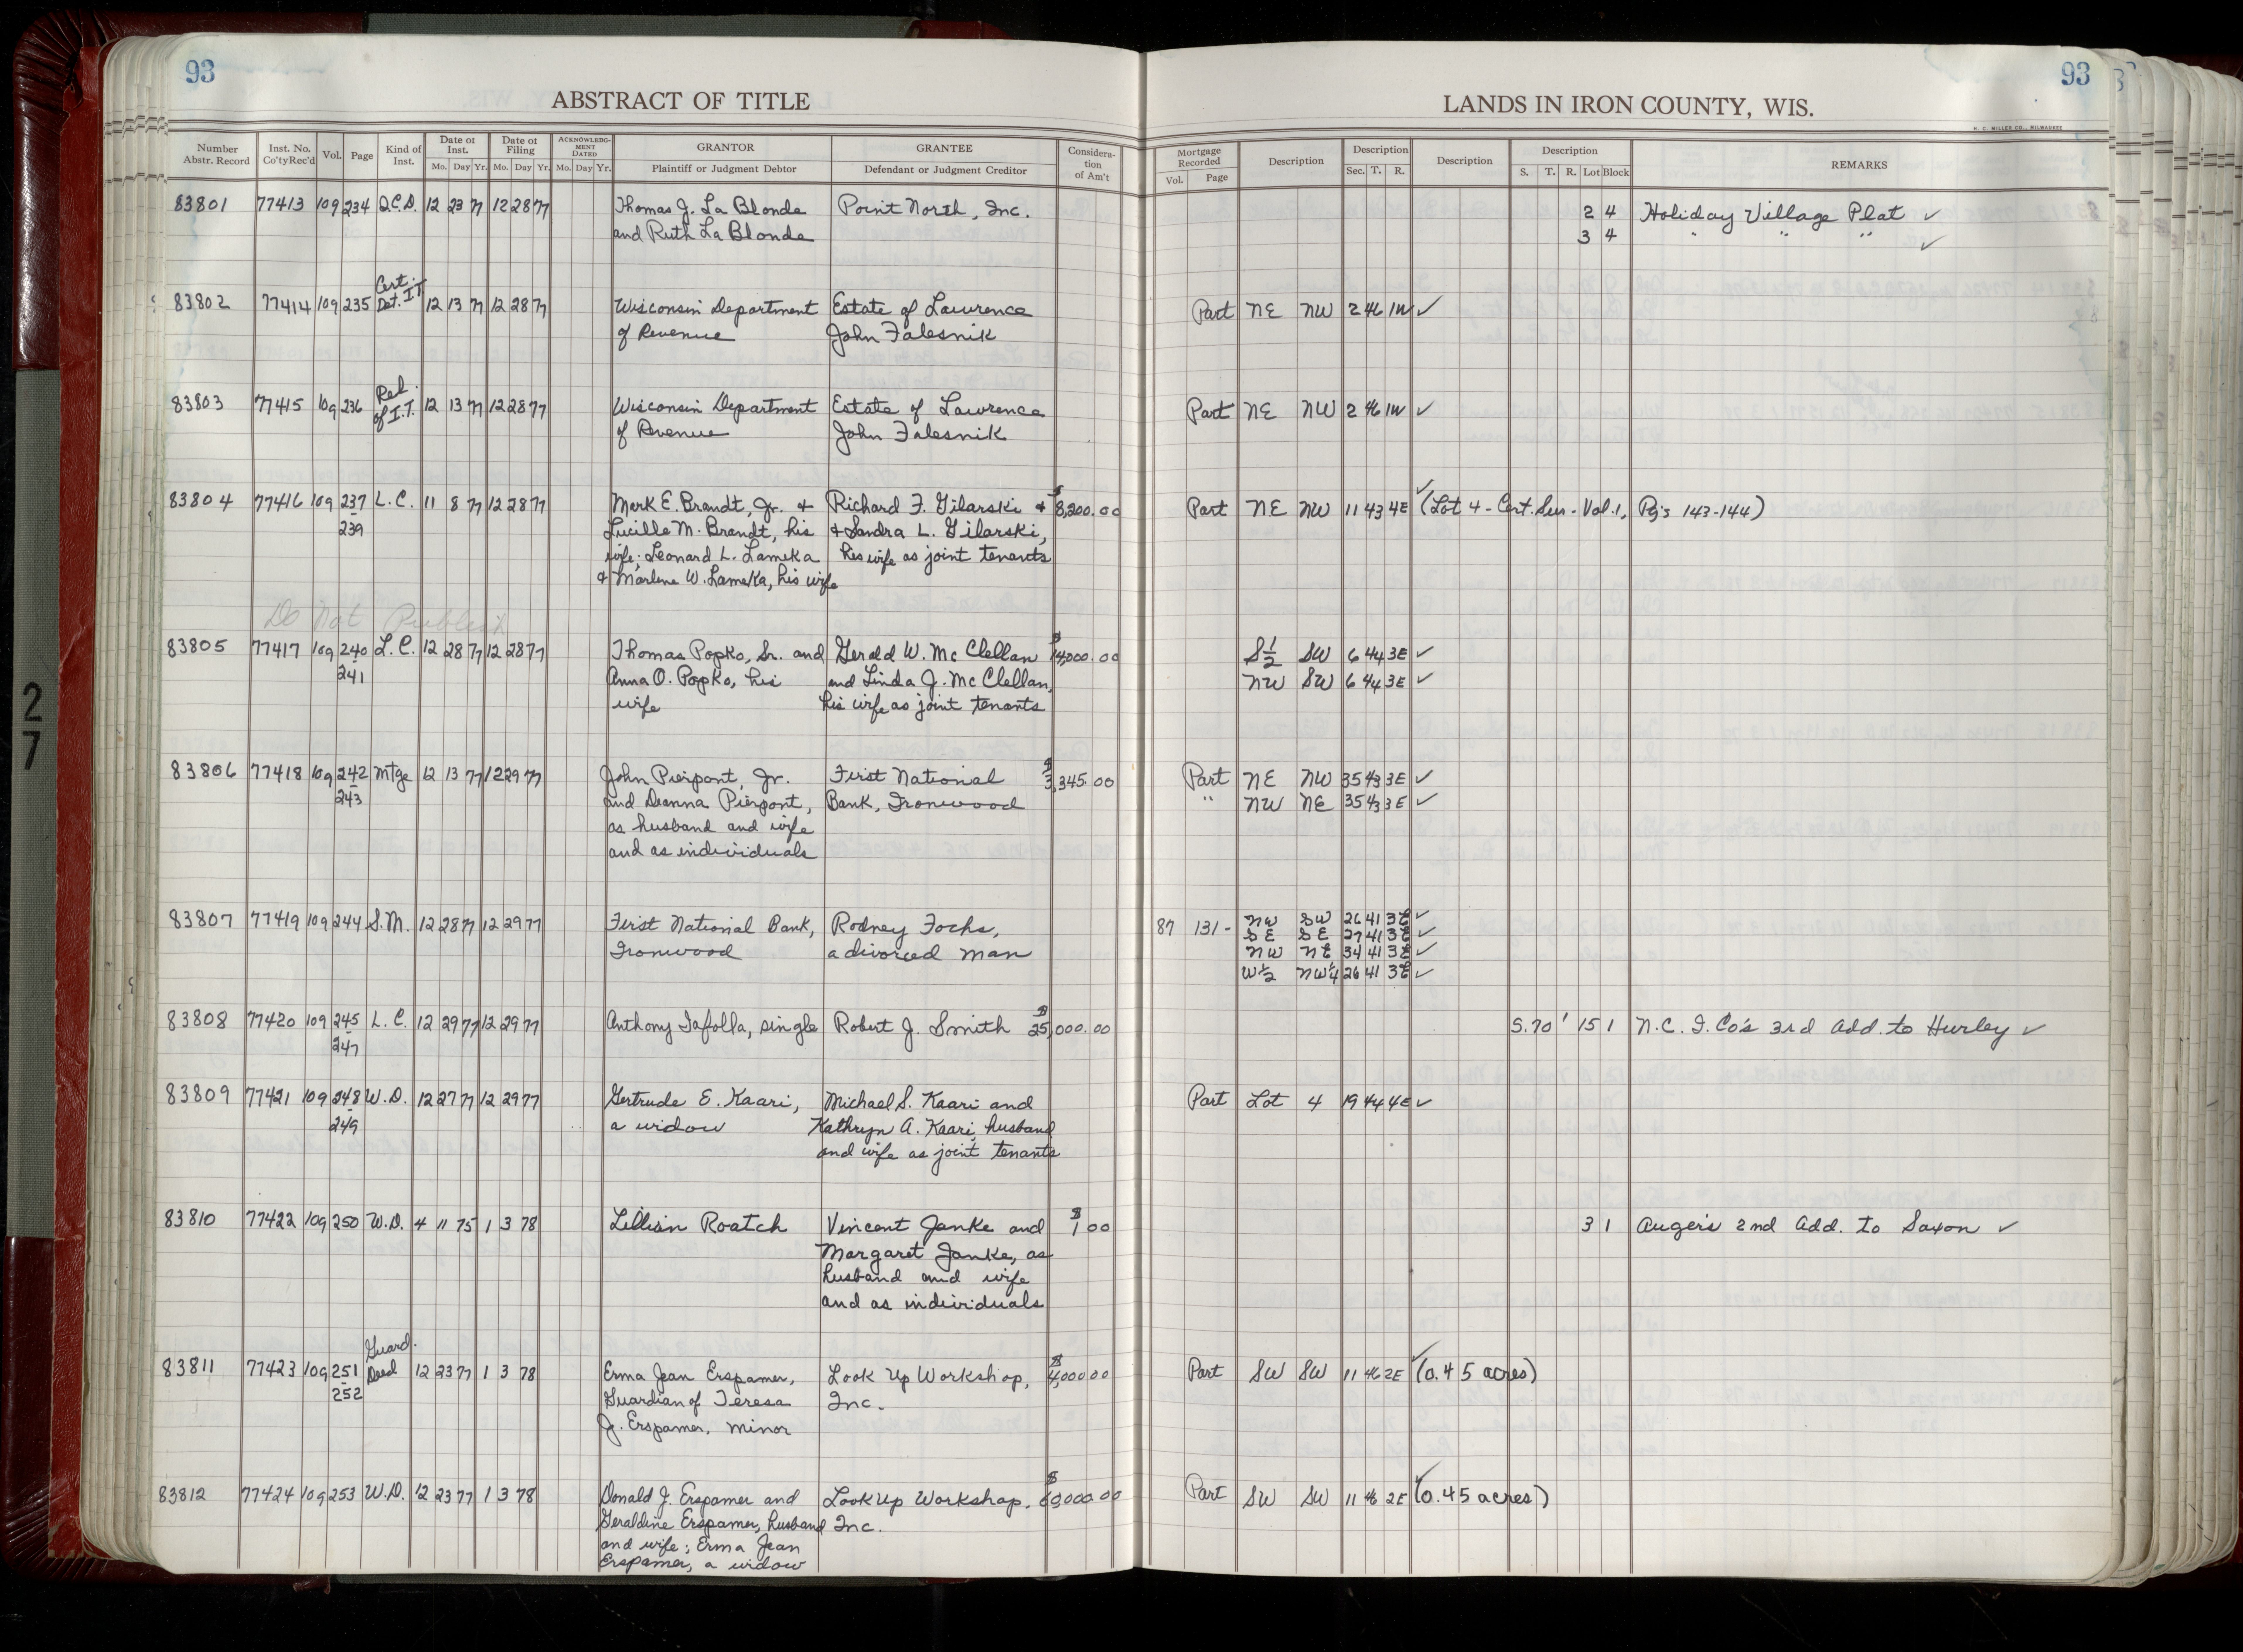 93
93
ABSTRACT OF TITLE
LANDS IN IRON COUNTY, WIS.
H. C. MILLER CO., MILWAUKEE
Number Abstr. Record | Inst. No. Co'tyRec'd | Vol. | Page | Kind of Inst. | Date of Inst. Mo. Day Yr. | Date of Filing Mo. Day Yr. | ACKNOWLEDGMENT DATED Mo. Day Yr. | GRANTOR Plaintiff or Judgment Debtor | GRANTEE Defendant or Judgment Creditor | Consideration of Am't | Mortgage Recorded Vol. Page | Description | Description Sec. T. R. | Description | Description S. T. R. Lot Block | REMARKS
83801 77413 109 234 Q.C.D. 12 23 77 12 28 77 Thomas J. La Blonde Point North, Inc. 2 4 Holiday Village Plat ✓
and Ruth La Blonde 3 4 " " " ✓
Cert.
83802 77414 109 235 Det. I.T. 12 13 77 12 28 77 Wisconsin Department Estate of Lawrence Part NE NW 2 46 1W ✓
of Revenue John Falesnik
Rel.
83803 77415 109 236 of I.T. 12 13 77 12 28 77 Wisconsin Department Estate of Lawrence Part NE NW 2 46 1W ✓
of Revenue John Falesnik
83804 77416 109 237 L.C. 11 8 77 12 28 77 Mark E. Brandt, Jr. & Richard F. Gilarski & $8,200.00 Part NE NW 11 43 4E ✓ (Lot 4 - Cert. Sur - Vol. 1, Pg's 143-144)
-239 Lucille M. Brandt, his & Sandra L. Gilarski,
wife; Leonard L. Lameka his wife as joint tenants
& Marlene W. Lameka, his wife
Do Not Publish
83805 77417 109 240 L.C. 12 28 77 12 28 77 Thomas Popko, Sr. and Gerald W. McClellan $14,000.00 S½ SW 6 44 3E ✓
-241 Anna O. Popko, his and Linda J. McClellan, NW SW 6 44 3E ✓
wife his wife as joint tenants
83806 77418 109 242 Mtge 12 13 77 12 29 77 John Pierpont, Jr. First National $3,345.00 Part NE NW 35 43 3E ✓
-243 and Deanna Pierpont, Bank, Ironwood " NW NE 35 43 3E ✓
as husband and wife
and as individuals
83807 77419 109 244 S.M. 12 28 77 12 29 77 First National Bank, Rodney Fochs, 87 131- NW SW 26 41 3E ✓
SE SE 27 41 3E ✓
Ironwood a divorced man NW NE 34 41 3E ✓
W½ NW¼ 26 41 3E ✓
83808 77420 109 245 L.C. 12 29 77 12 29 77 Anthony Tafolla, single Robert J. Smith $25,000.00 S.70' 15 1 N.C.I. Co's 3rd Add. to Hurley ✓
-247
83809 77421 109 248 W.D. 12 27 77 12 29 77 Gertrude E. Kaari, Michael S. Kaari and Part Lot 4 19 44 4E ✓
-249 a widow Kathryn A. Kaari, husband
and wife as joint tenants
83810 77422 109 250 W.D. 4 11 75 1 3 78 Lillian Roatch Vincent Janke and $1 00 3 1 Auger's 2nd Add. to Saxon ✓
Margaret Janke, as
husband and wife
and as individuals
Guard.
83811 77423 109 251 Deed 12 23 77 1 3 78 Erma Jean Erspamer, Look Up Workshop, $4,000 00 Part SW SW 11 46 2E ✓ (0.45 acres)
-252 Guardian of Teresa Inc.
J. Erspamer, minor
83812 77424 109 253 W.D. 12 23 77 1 3 78 Donald J. Erspamer and Look Up Workshop, $60,000.00 Part SW SW 11 46 2E ✓ (0.45 acres)
Geraldine Erspamer, husband Inc.
and wife; Erma Jean
Erspamer, a widow
2
7